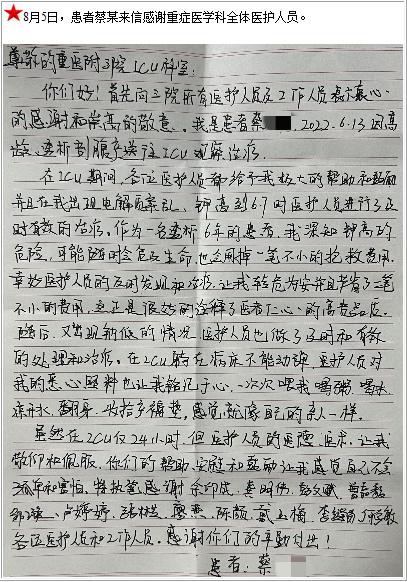 8月5日，患者蔡某来信感谢重症医学科全体医护人员。
尊敬的重医附三院ICU科室：
你们好！首先向三院所有医护人员及工作人员表示衷心
的感谢和崇高的敬意。我是患者蔡 2022.6.13因高
龄、透析剖腹产送往ICU观察治疗。
在ICU期间，各位医护人员都给予我极大的帮助和鼓励
并且在我出现电解质紊乱、钾高到6.7时医护人员进行了及
时有效的治疗。作为一名透析6年的患者，我深知钾高的
危险，可能随时会危及生命，也会用掉一笔不小的抢救费用。
幸好医护人员的及时发现和治疗，让我转危为安并且节省了一笔
不小的费用，这正是很好的诠释了医者仁心的高贵品质。
随后，又出现钠低的情况，医护人员也做了及时和有效
的处理和治疗。在ICU躺在病床不能动弹，医护人员对
我的悉心照料也让我铭记于心，一次次喂我喝粥、喝水
凉开水、翻身、收拾多褥垫，感觉就像自己的亲人一样。
虽然在ICU仅24小时，但医护人员的医德、医术，让我
敬仰和佩服，你们的帮助、安慰和鼓励让我感觉自己不会
孤单和害怕，特执笔感谢余印成、龚明伟、
卢婷婷、 陈颜、戴玉梅、
各位医护人员和工作人员。感谢你们的辛勤付出！
患者：蔡